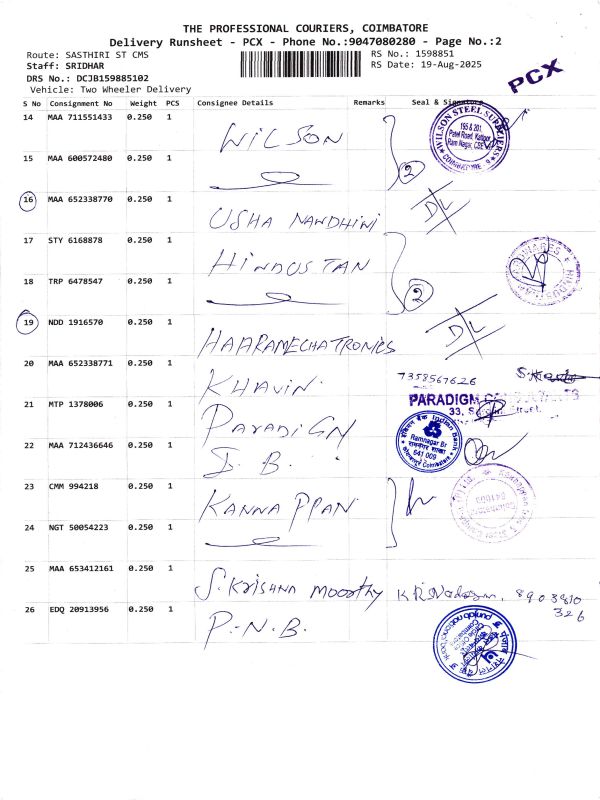 THE PROFESSIONAL COURIERS, COIMBATORE
Delivery Runsheet - PCX - Phone No.:9047080280 - Page No.:2
Route: SASTHIRI ST CMS
RS No.: 1598851
Staff: SRIDHAR
RS Date: 19-Aug-2025
DRS No.: DCJB159885102
PCX
Vehicle: Two Wheeler Delivery
S No Consignment No Weight PCS Consignee Details Remarks Seal & Signature
14 MAA 711551433 0.250 1 WILSON
WILSON STEEL SUPPLIERS
195 & 201
Patel Road, Kattoor
Ram Nagar, CBE
COIMBATORE
15 MAA 600572480 0.250 1
2
16 MAA 652338770 0.250 1 USHA NANDHINI D/L
17 STY 6168878 0.250 1 HINDUSTAN
18 TRP 6478547 0.250 1
2
19 NDD 1916570 0.250 1 HAARAMECHATRONICS D/L
20 MAA 652338771 0.250 1 KHAVIN 7358567626
21 MTP 1378006 0.250 1 PARADIGM
PARADIGM
33,
Street.
22 MAA 712436646 0.250 1 I. B.
Indian Bank
Ramnagar Br
रामनगर शाखा
641 009
Coimbatore
23 CMM 994218 0.250 1 KANNAPPAN
24 NGT 50054223 0.250 1
25 MAA 653412161 0.250 1 S. Krishna Moorthy 8903910
326
26 EDQ 20913956 0.250 1 P.N.B.
punjab national bank